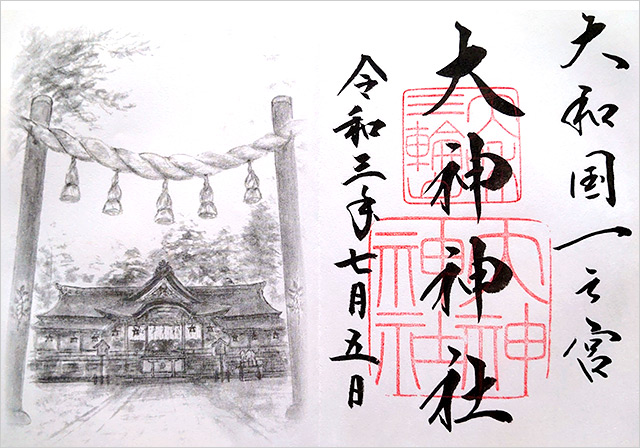 大和国一之宮
大神神社
令和三年七月五日
三輪
大神
神社